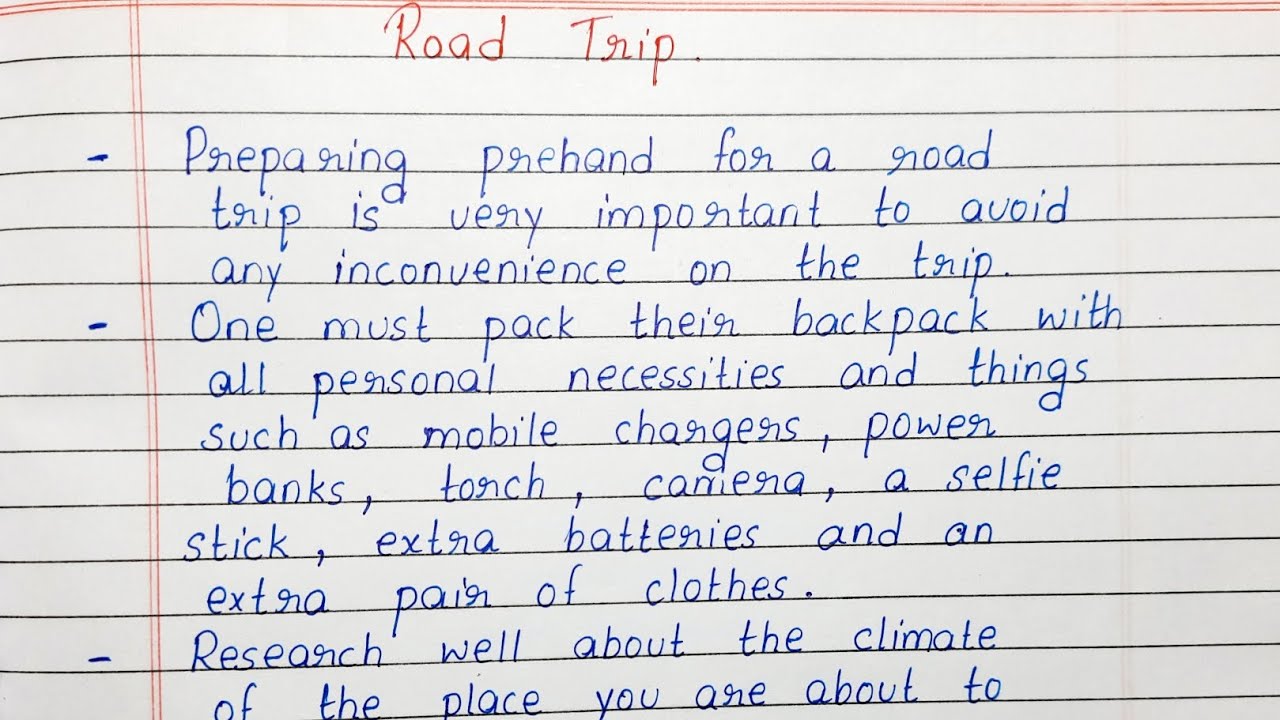 Road Trip.
- Preparing prehand for a road
trip is very important to avoid
any inconvenience on the trip.
- One must pack their backpack with
all personal necessities and things
such as mobile chargers, power
banks, torch, camera, a selfie
stick, extra batteries and an
extra pair of clothes.
- Research well about the climate
of the place you are about to